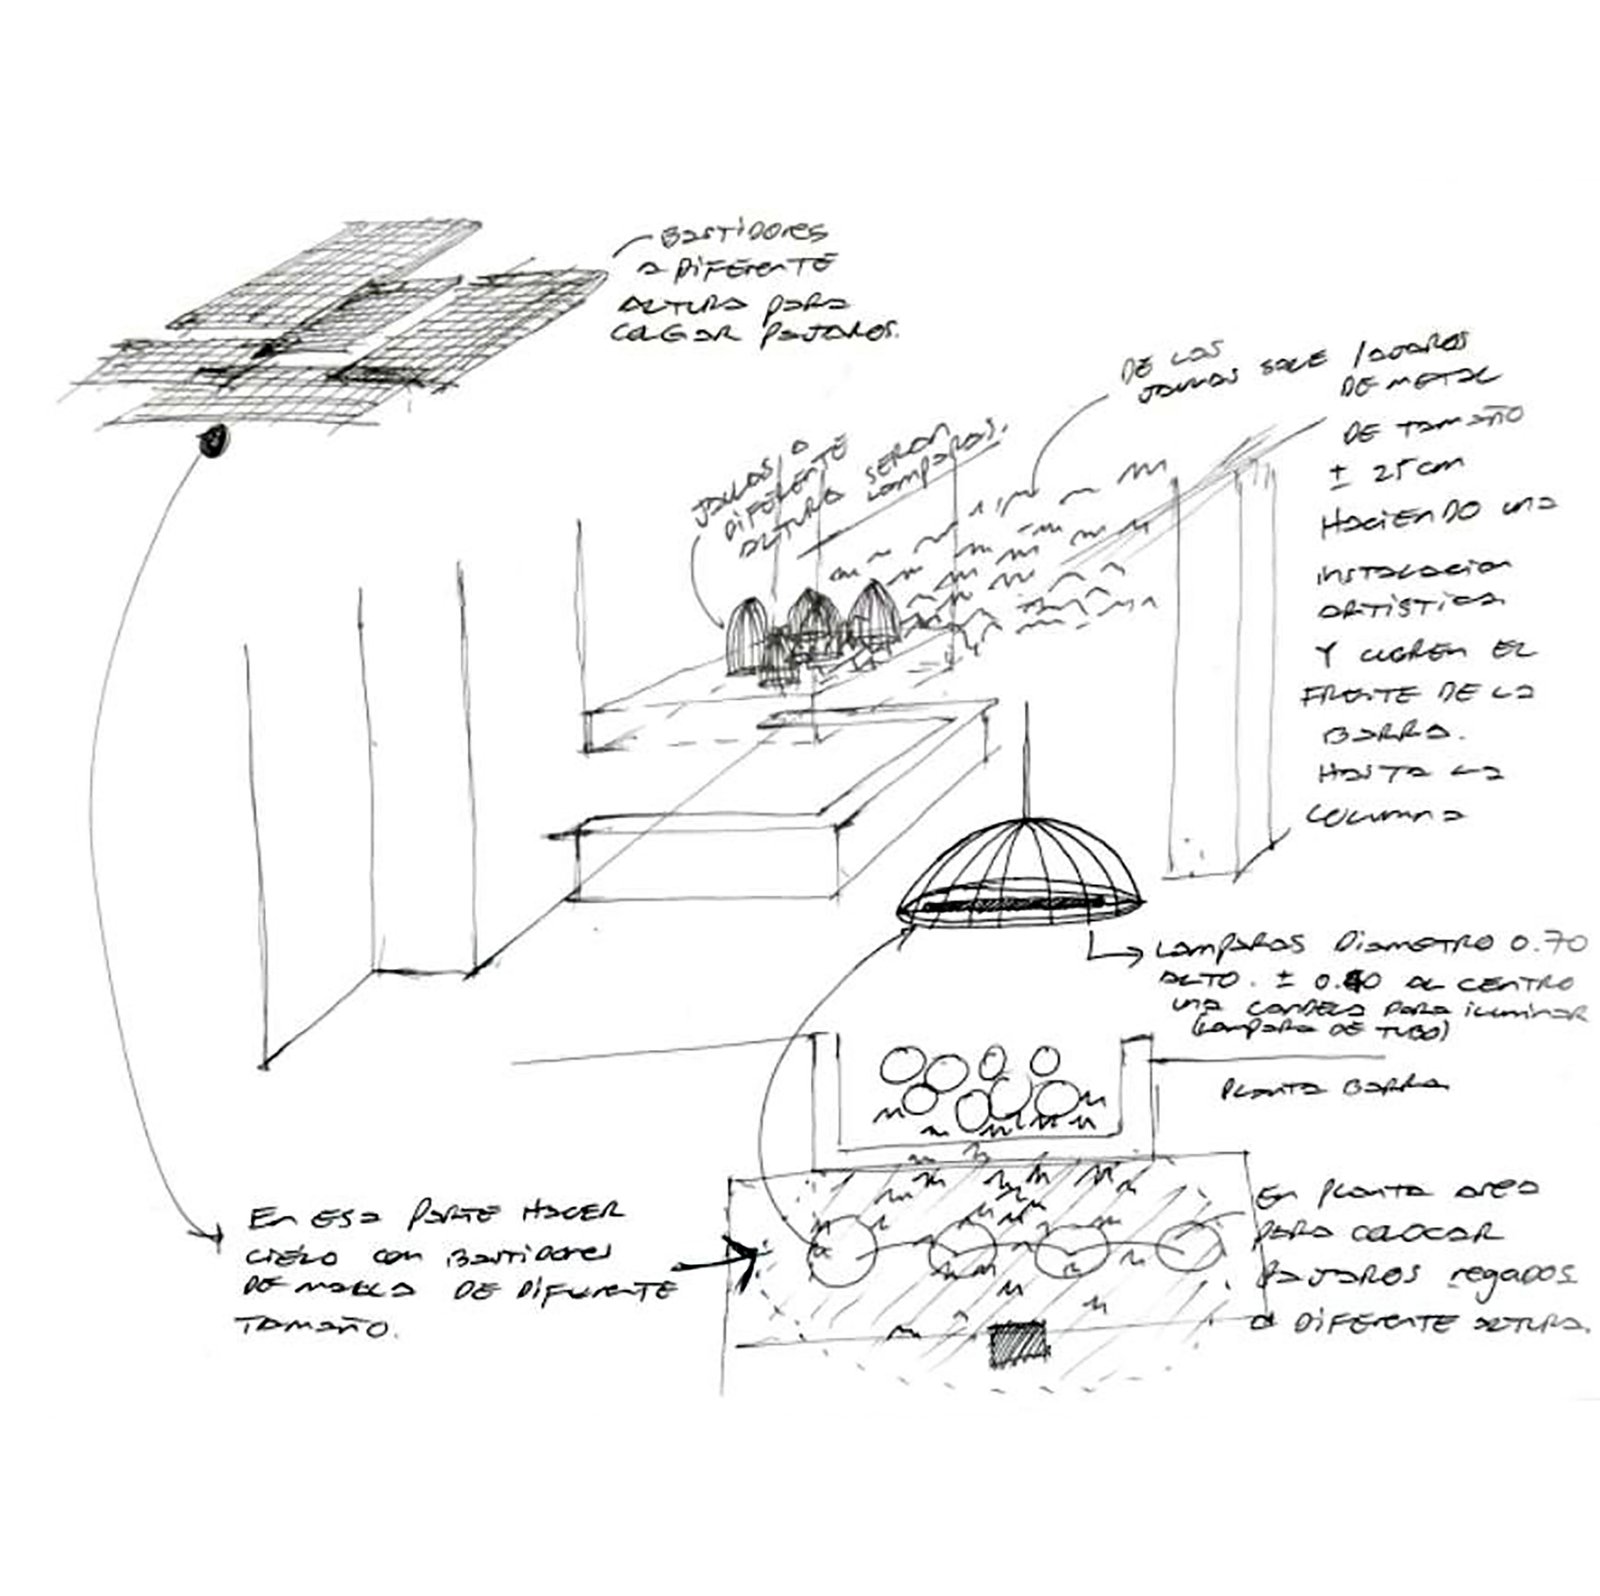 BASTIDORES
A DIFERENTE
ALTURA PARA
COLGAR PAJAROS.
JAULAS A
DIFERENTE
ALTURA SERAN
LAMPARAS.
DE LAS
JAULAS SALE PAJAROS
DE METAL
DE TAMAÑO
± 25 cm
HACIENDO UNA
INSTALACION
ARTISTICA
Y CUBREN EL
FRENTE DE LA
BARRA.
HASTA LA
COLUMNA
LAMPARAS DIAMETRO 0.70
ALTO. ± 0.40 AL CENTRO
UNA CANDELA PARA ILUMINAR
(LAMPARA DE TUBO)
PLANTA BARRA
EN PLANTA AREA
PARA COLOCAR
PAJAROS REGADOS
A DIFERENTE ALTURA.
EN ESA PARTE HACER
CIELO CON BASTIDORES
DE MALLA DE DIFERENTE
TAMAÑO.